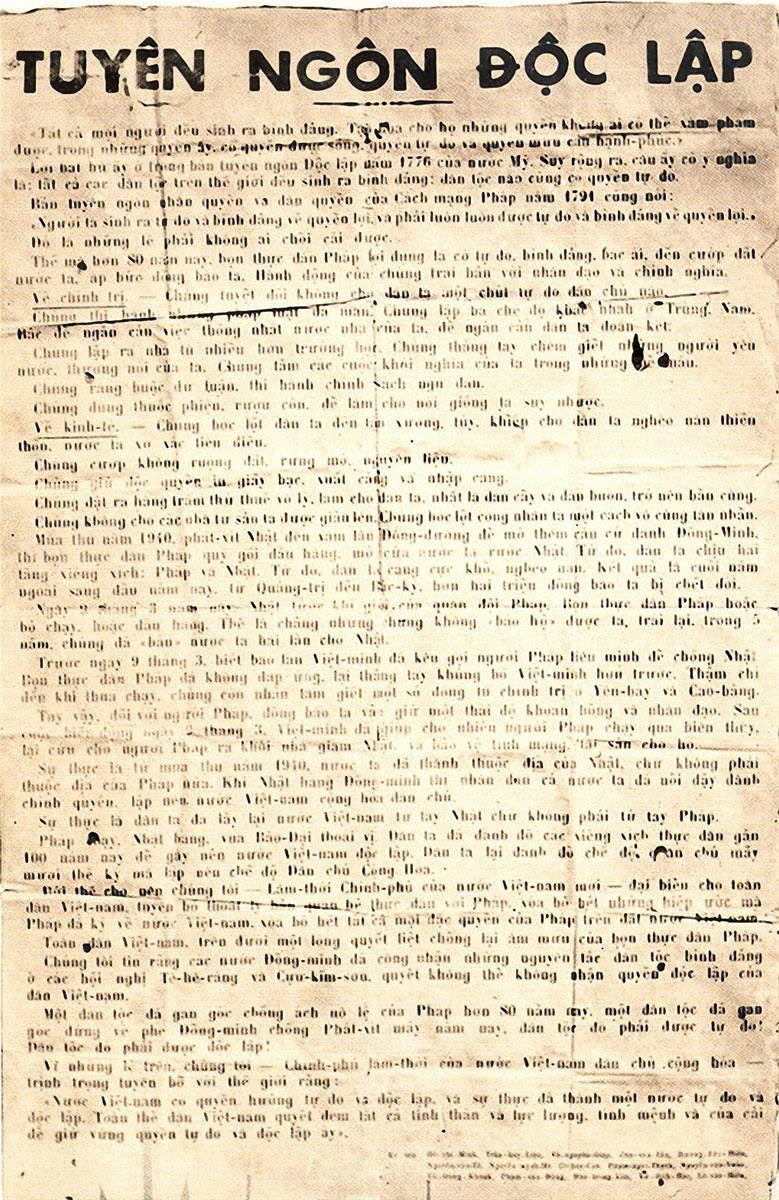 TUYÊN NGÔN ĐỘC LẬP
«Tất cả mọi người đều sinh ra bình đẳng. Tạo hóa cho họ những quyền không ai có thể xâm phạm
được, trong những quyền ấy, có quyền được sống, quyền tự do và quyền mưu cầu hạnh-phúc.»
Lời bất hủ ấy ở trong bản tuyên ngôn Độc lập năm 1776 của nước Mỹ. Suy rộng ra, câu ấy có ý nghĩa
là: tất cả các dân tộc trên thế giới đều sinh ra bình đẳng; dân tộc nào cũng có quyền tự do.
Bản tuyên ngôn nhân quyền và dân quyền của Cách mạng Pháp năm 1791 cũng nói:
«Người ta sinh ra tự do và bình đẳng về quyền lợi, và phải luôn luôn được tự do và bình đẳng về quyền lợi.»
Đó là những lẽ phải không ai chối cãi được.
Thế mà hơn 80 năm nay, bọn thực dân Pháp lợi dụng lá cờ tự do, bình đẳng, bác ái, đến cướp đất
nước ta, áp bức đồng bào ta. Hành động của chúng trái hẳn với nhân đạo và chính nghĩa.
Về chính trị. — Chúng tuyệt đối không cho dân ta một chút tự do dân chủ nào.
Chúng thi hành những pháp luật dã man. Chúng lập ba chế độ khác nhau ở Trung, Nam,
Bắc để ngăn cản việc thống nhất nước nhà của ta, để ngăn cản dân ta đoàn kết.
Chúng lập ra nhà tù nhiều hơn trường học. Chúng thẳng tay chém giết những người yêu
nước, thương nòi của ta. Chúng tắm các cuộc khởi nghĩa của ta trong những bể máu.
Chúng ràng buộc dư luận, thi hành chính sách ngu dân.
Chúng dùng thuốc phiện, rượu cồn, để làm cho nòi giống ta suy nhược.
Về kinh-tế. — Chúng bóc lột dân ta đến tận xương, tủy, khiến cho dân ta nghèo nàn thiếu
thốn, nước ta xơ xác tiêu điều.
Chúng cướp không ruộng đất, rừng mỏ, nguyên liệu.
Chúng giữ độc quyền in giấy bạc, xuất cảng và nhập cảng.
Chúng đặt ra hàng trăm thứ thuế vô lý, làm cho dân ta, nhất là dân cầy và dân buôn, trở nên bần cùng.
Chúng không cho các nhà tư sản ta được giầu lên. Chúng bóc lột công nhân ta một cách vô cùng tàn nhẫn.
Mùa thu năm 1940, phát-xít Nhật đến xâm lăn Đông-dương để mở thêm căn cứ đánh Đồng-Minh,
thì bọn thực dân Pháp quỳ gối đầu hàng, mở cửa nước ta rước Nhật. Từ đó, dân ta chịu hai
tầng xiềng xích: Pháp và Nhật. Từ đó, dân ta càng cực khổ, nghèo nàn. Kết quả là cuối năm
ngoái sang đầu năm nay, từ Quảng-trị đến Bắc-kỳ, hơn hai triệu đồng bào ta bị chết đói.
Ngày 9 tháng 3 năm nay, Nhật tước khí giới của quân đội Pháp. Bọn thực dân Pháp hoặc
bỏ chạy, hoặc đầu hàng. Thế là chẳng những chúng không «bảo hộ» được ta, trái lại, trong 5
năm, chúng đã «bán» nước ta hai lần cho Nhật.
Trước ngày 9 tháng 3, biết bao lần Việt-minh đã kêu gọi người Pháp liên minh để chống Nhật.
Bọn thực dân Pháp đã không đáp ứng, lại thẳng tay khủng bố Việt-minh hơn trước. Thậm chí
đến khi thua chạy, chúng còn nhẫn tâm giết một số đông tù chính trị ở Yên-bay và Cao-bằng.
Tuy vậy, đối với người Pháp, đồng bào ta vẫn giữ một thái độ khoan hồng và nhân đạo. Sau
cuộc biến động ngày 9 tháng 3, Việt-minh đã giúp cho nhiều người Pháp chạy qua biên thùy,
lại cứu cho người Pháp ra khỏi nhà giam Nhật, và bảo vệ tính mạng, tài sản cho họ.
Sự thực là từ mùa thu năm 1940, nước ta đã thành thuộc địa của Nhật, chứ không phải
thuộc địa của Pháp nữa. Khi Nhật hàng Đồng-minh thì nhân dân cả nước ta đã nổi dậy dành
chính quyền, lập nên nước Việt-nam cộng hòa dân chủ.
Sự thực là dân ta đã lấy lại nước Việt-nam từ tay Nhật chứ không phải từ tay Pháp.
Pháp chạy, Nhật hàng, vua Bảo-Đại thoái vị. Dân ta đã đánh đổ các xiềng xích thực dân gần
100 năm nay để gây nên nước Việt-nam độc lập. Dân ta lại đánh đổ chế độ quân chủ mấy
mươi thế kỷ mà lập nên chế độ Dân chủ Cộng Hòa.
Bởi thế cho nên chúng tôi — Lâm-thời Chính-phủ của nước Việt-nam mới — đại biểu cho toàn
dân Việt-nam, tuyên bố thoát ly hẳn quan hệ thực dân với Pháp, xóa bỏ hết những hiệp ước mà
Pháp đã ký về nước Việt-nam, xóa bỏ hết tất cả mọi đặc quyền của Pháp trên đất nước Việt-nam.
Toàn dân Việt-nam, trên dưới một lòng quyết liệt chống lại âm mưu của bọn thực dân Pháp.
Chúng tôi tin rằng các nước Đồng-minh đã công nhận những nguyên tắc dân tộc bình đẳng
ở các hội nghị Tê-hê-răng và Cựu-kim-sơn, quyết không thể không nhận quyền độc lập của
dân Việt-nam.
Một dân tộc đã gan góc chống ách nô lệ của Pháp hơn 80 năm nay, một dân tộc đã gan
góc đứng về phe Đồng-minh chống Phát-xít mấy năm nay, dân tộc đó phải được tự do!
Dân tộc đó phải được độc lập!
Vì những lẽ trên, chúng tôi — Chính-phủ lâm-thời của nước Việt-nam dân chủ cộng hòa —
trịnh trọng tuyên bố với thế giới rằng:
«Nước Việt-nam có quyền hưởng tự do và độc lập, và sự thực đã thành một nước tự do và
độc lập. Toàn thể dân Việt-nam quyết đem tất cả tinh thần và lực lượng, tính mệnh và của cải
để giữ vững quyền tự do và độc lập ấy».